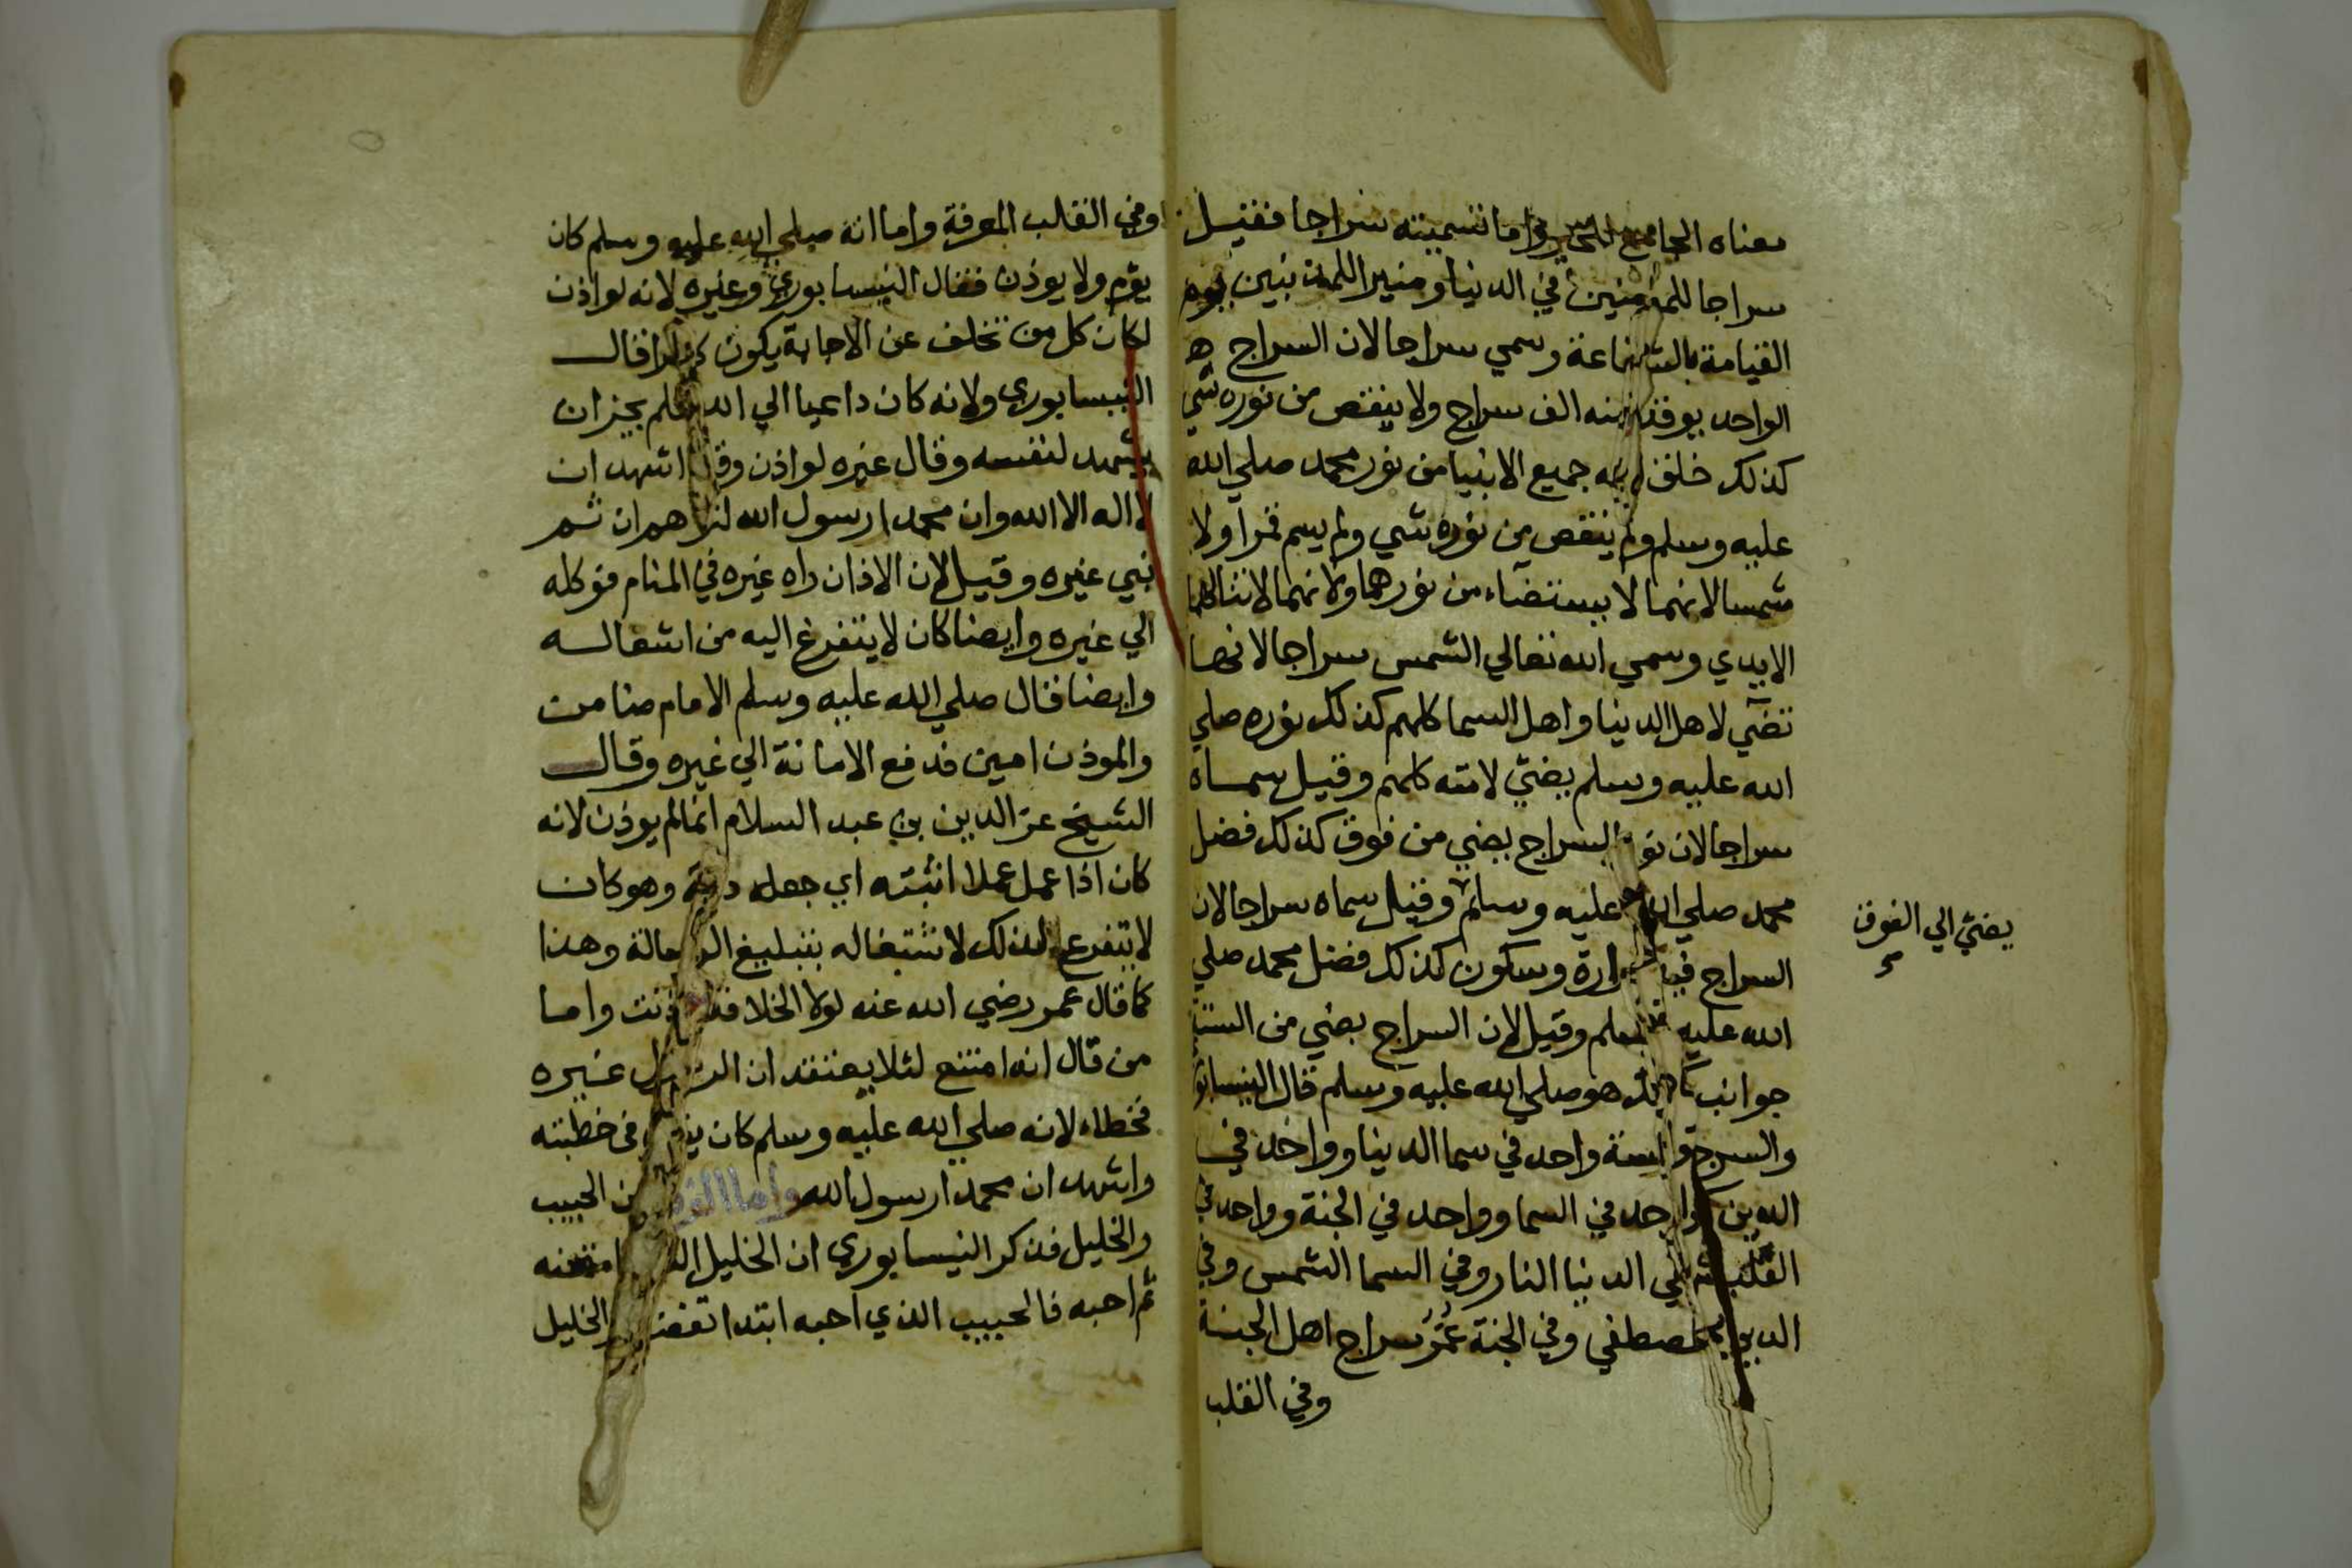 معناه الجامع للخير واما تسميته سراجا فقيل
سراجا للمؤمنين في الدنيا ومنيرا للمذنبين يوم
القيامة بالشفاعة وسمي سراجا لان السراج
الواحد يوقد منه الف سراج ولا ينقص من نوره شي
كذلك خلق الله جميع الانبيا من نور محمد صلي الله
عليه وسلم ولم ينقص من نوره شي ولم يسم قمرا ولا
شمسا لانهما لا يستضاء من نورهما ولانهما لا تنالهما
الايدي وسمي الله تعالي الشمس سراجا لانها
تضي لاهل الدنيا واهل السما كلهم كذلك نوره صلي
الله عليه وسلم يضي لامته كلهم وقيل سماه
سراجا لان نور السراج يضي من فوق كذلك فضل
محمد صلي الله عليه وسلم وقيل سماه سراجا لان
يضي الي الفوق
السراج فيه حرارة وسكون كذلك فضل محمد صلي
الله عليه وسلم وقيل لان السراج يضي من الستة
جوانب كذلك هو صلي الله عليه وسلم قال النيسابو
والسرج خمسة واحد في سما الدنيا وواحد في
الدين وواحد في السما وواحد في الجنة وواحد في
القلب ففي الدنيا النار وفي السما الشمس وفي
الدين المصطفي وفي الجنة عُمَرُ سراج اهل الجنة
وفي القلب
وفي القلب المعرفة واما انه صلي الله عليه وسلم كان
يؤم ولا يوذن فقال النيسابوري وغيره لانه لو اذن
لكان كل من تخلف عن الاجابة يكون كافرا قال
النيسابوري ولانه كان داعيا الي الله فلم يجز ان
يشهد لنفسه وقال غيره لو اذن وقال اشهد ان
لا اله الا الله وان محمدا رسول الله لتوهم ان ثم
نبي غيره وقيل لان الاذان راه غيره في المنام فوكله
الي غيره وايضا كان لا يتفرغ اليه من اشغاله
وايضا قال صلي الله عليه وسلم الامام ضامن
والموذن امين فدفع الامانة الي غيره وقال
الشيخ عز الدين بن عبد السلام انما لم يوذن لانه
كان اذا عمل عملا اثبته اي جعله ديمة وهو كان
لا يتفرغ لذلك لاشتغاله بتبليغ الرسالة وهذا
كما قال عمر رضي الله عنه لولا الخلافة لاذنت واما
من قال انه امتنع لئلا يعتقد ان الرسول غيره
فخطاء لانه صلي الله عليه وسلم كان يقول في خطبته
واشهد ان محمدا رسول الله واما الفرق بين الحبيب
والخليل فذكر النيسابوري ان الخليل امتحنه
ثم احبه فالحبيب الذي احبه ابتدا الخليل